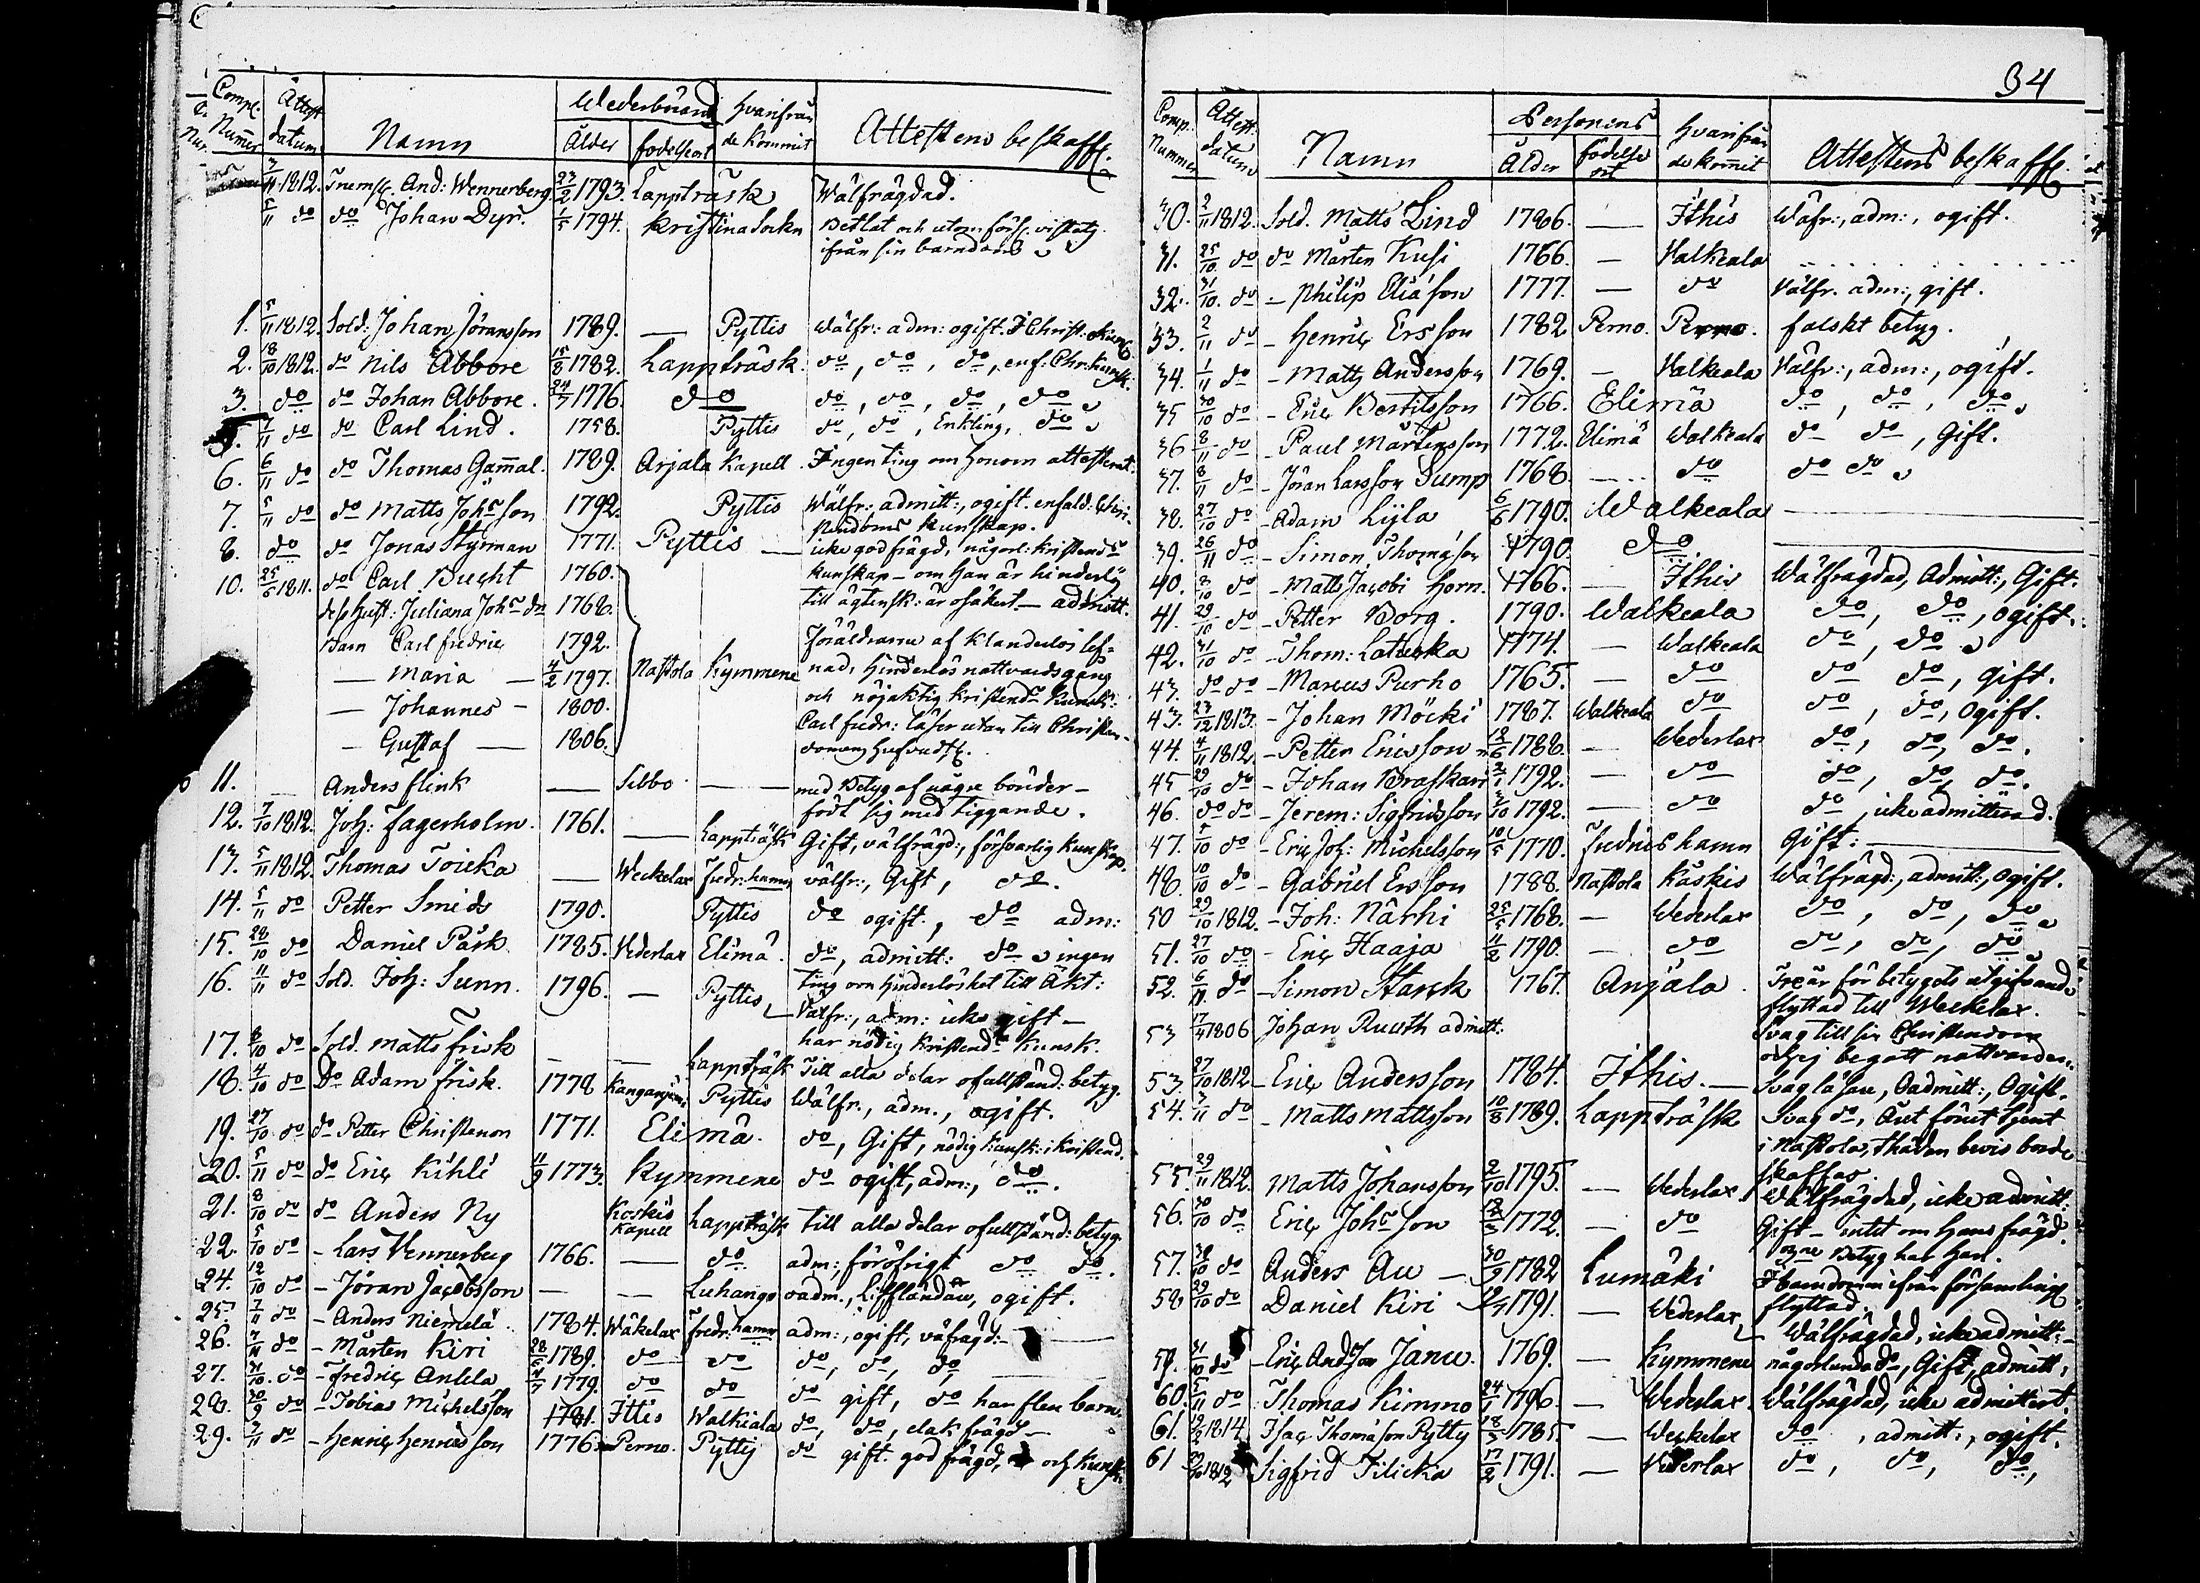 34
Comp. Nummer Attest datum Namn Wederbörand Ålder födelseort hvarifrån de kommit Attestens beskaff.
3/11 1812. And: Wennerberg 23/2 1793. Lappträsk Wälfrägdad.
5/11 do do Johan Dyr. 1/5 1794. Kristina Sockn och utom förs: vistats
ifrån sin barndom
1. 5/11 1812. Sold: Johan Jöransson 1789. — Pyttis Wälfr: adm: ogift.
2. 18/10 1812. do Nils Abbore 15/8 1782. Lappträsk. do, do, do, enf: Chr: kunsk:
3. do do Johan Abbore. 24/7 1776. do do, do, do, do
7/11 do do Carl Lind. 1758. Pyttis do, do, Enkling, do
6. 6/11 do do Thomas Gam̄al. 1789. Anjala Kapell. Ingenting om honom attesterat.
7. 5/11 do do Matts Johsson 1792. Pyttis Wälfr: admitt:, ogift. enfald: Chri-
stendoms kunskap.
8. do do Jonas Styrman 1771. Pyttis — icke god frägd, någorl: kristends
10. 25/6 1811. do Carl Bucht 1760. kunskap – om han är hinderlös
dess hust: Juliana Johsdr 1768. till ägtensk: är osäkert – admitt.
Barn Carl Fredric 1792. Föräldrarne af klanderlös lef-
— Maria — 4/2 1797. Nastola Kymmene nad, hinderlös nattvardsgång
— Johannes – 1800. och nöjaktig kristends kunsk:
– Gustaf — 1806. Carl Fredr: läser utan till Christen-
domens hufvudst.
11. — Anders Flink — Sibbo — med Betyg af någre bönder –
födt sig med tiggande.
12. 7/10 1812. Joh: Fagerholm. 1761. — Lappträsk Gift, välfrägd:, försvarlig kunskap.
13. 5/11 1812. Thomas Toicka — Weckelax Fredr:hamn välfr:, Gift, do.
14. 5/11 do Petter Smids 1790. Pyttis do ogift, do adm:
15. 28/10 do Daniel Pärk 1785. Vederlax Elimä. do, admitt: do ingen
16. 11/11 do Sold. Joh: Sunn. 1796. — Pyttis ting om hinderlöshet till Äkt:
Välfr:, adm: icke gift –
17. 8/10 do Sold. Matts Frisk — — Lappträsk har nödig kristends kunsk.
18. 4/10 do Do Adam Frisk. 1778 Pyttis Till alla delar ofullständ: betyg.
Wälfr., adm., ogift.
19. 27/10 do do Petter Christenson 1771. Elimä. do, Gift, nödig kunsk: i kristend.
20. 5/11 do do Eric Kihle 11/9 1773. Kymmene do ogift, adm:, do.
21. 8/10 do do Anders Ny Koskis Kapell Lappträsk till alla delar ofullständ: betyg.
22. 5/10 do – Lars Vennerberg 1766. — do adm:, föröfrigt do do.
24. 12/10 do – Jöran Jacobsson — — Luhango oadm., Lifländare, ogift.
25. 7/11 do – Anders Niemelä 1784. Wäkelax Fredr:hamn adm:, ogift, väfrägd:–
26. 7/11 do – Mårten Kiri 28/6 1789. do do do, do, do,
27. 31/10. do – Fredric Antila 4/7 1779. do do
28. 30/9 do – Tobias Michelsson 1781. Ittis Walkiala do gift, do har flere barn.
29. 3/11 do – Henric Henricsson 1776 Perno. Pyttis do gift. god frägd, och kunsk:
Comp. Nummer Attest. datum Namn Personens Ålder födelse ort Hvarifrån de kom̄it Attestens beskaff.
30. 2/11 1812. Sold. Matts Lind 1786. — Ithis Wäfr:, adm:, ogift.
31. 25/10 do do Mårten Kusi 1766. — Valkeala
32. 31/10. do – Philip Eliäson 1777. — do Välfr. adm:, gift.
33. 2/11 do – Henric Ersson 1782 Perno. Perno. falskt betyg.
34. 1/11 do – Matts Andersson 1769. – Valkeala Välfr:, adm:, ogift.
35 30/10 do – Eric Bertilsson 1766. Elimä do, do, do
36 8/11 do – Paul Mårtensson 1772. Elimä Walkeala do do, Gift.
37. 8/11 do – Jöran Larsson Sump 1768. — do do do
38. 27/10 do – Adam Lyla 6/6 1790. Walkeala —
39. 26/11 do – Simon Thomäson 1790. do
40. 8/10 do – Matts Jacobi Horn. 1766. — Ithis Wälfrägdad, Admitt:, Gift.
41. 29/10 do – Petter Borg. 1790. Walkeala do, do, ogift.
42. 31/10 do – Thom: Latuska 1774. – Walkeala do, do
43. do do – Marcus Purho 1765. – do do do, gift.
43. 23/12 1813. – Johan Möcki 1787. Walkeala do do, do, Ogift.
44. 4/11 1812. – Petter Ericsson 12/6 1788. – Wederlax do, do, do.
45 29/10 do – Johan Braskari 2/1 1792. — do do, do, do.
46. do do – Jerem: Sigfridsson 3/10 1792. — do do, icke admitterad.
47. 5/10 do – Eric Joh: Michelsson 10/5 1770. Fredrics hamn Gift: —
48. 10/10 do – Gabriel Ersson 1788. Nastola Käskis Wälfrägd:, admitt:, ogift.
50 29/10 1812. – Joh: Närhi 25/5 1768. — Wederlax do, do, do
51. 27/10 do – Eric Haaja 11/2 1790. — do do, do, do
52. 6/11 do – Simon Starck 1767. Anjala. Tre år för betygets utgifvande
flyttad till Weckelax.
53 17/4 1806 Johan Ruuth admitt: Svag till sin Christendom
och ej begått nattvarden
53 27/10 1812 – Eric Andersson 1784. Ithis. — Svag läsare, Oadmitt:, Ogift.
54. 3/11 do – Matts Mattsson 10/8 1789. Lappträsk Svag do, Året förut tjent
i Nastola, thädan bevis borde
skaffas.
55. 29/11 1812. Matts Johansson 2/10 1795. — Wederlax Wälfrägdad, icke admitt.
56. 30/10 do Eric Johsson 1772. – do Gift – intet om hans frägd.
Betyg har han.
57. 30/10 do Anders Au – 30/9 1782 Lumäki I barndomen ifrån församling
flyttad.
58 29/10 do Daniel Kiri 1791. — Wederlax – Wälfrägdad, icke admitt:–
59. 31/10 do – Eric Andsson Janu. 1769. – Kymmene någorlunda do, Gift, admitt,
60. 5/11 do Thomas Kimmo 24/1 1796. — Wederlax Wälfrägdad, icke admittert.
61. 1814 Isac Thomäson Pytty 18/3 1785. – Weckelax do, admitt:, ogift.
61 1812 Sigfrid Filicka 17/2 1791. — Vederlax do, do, do,